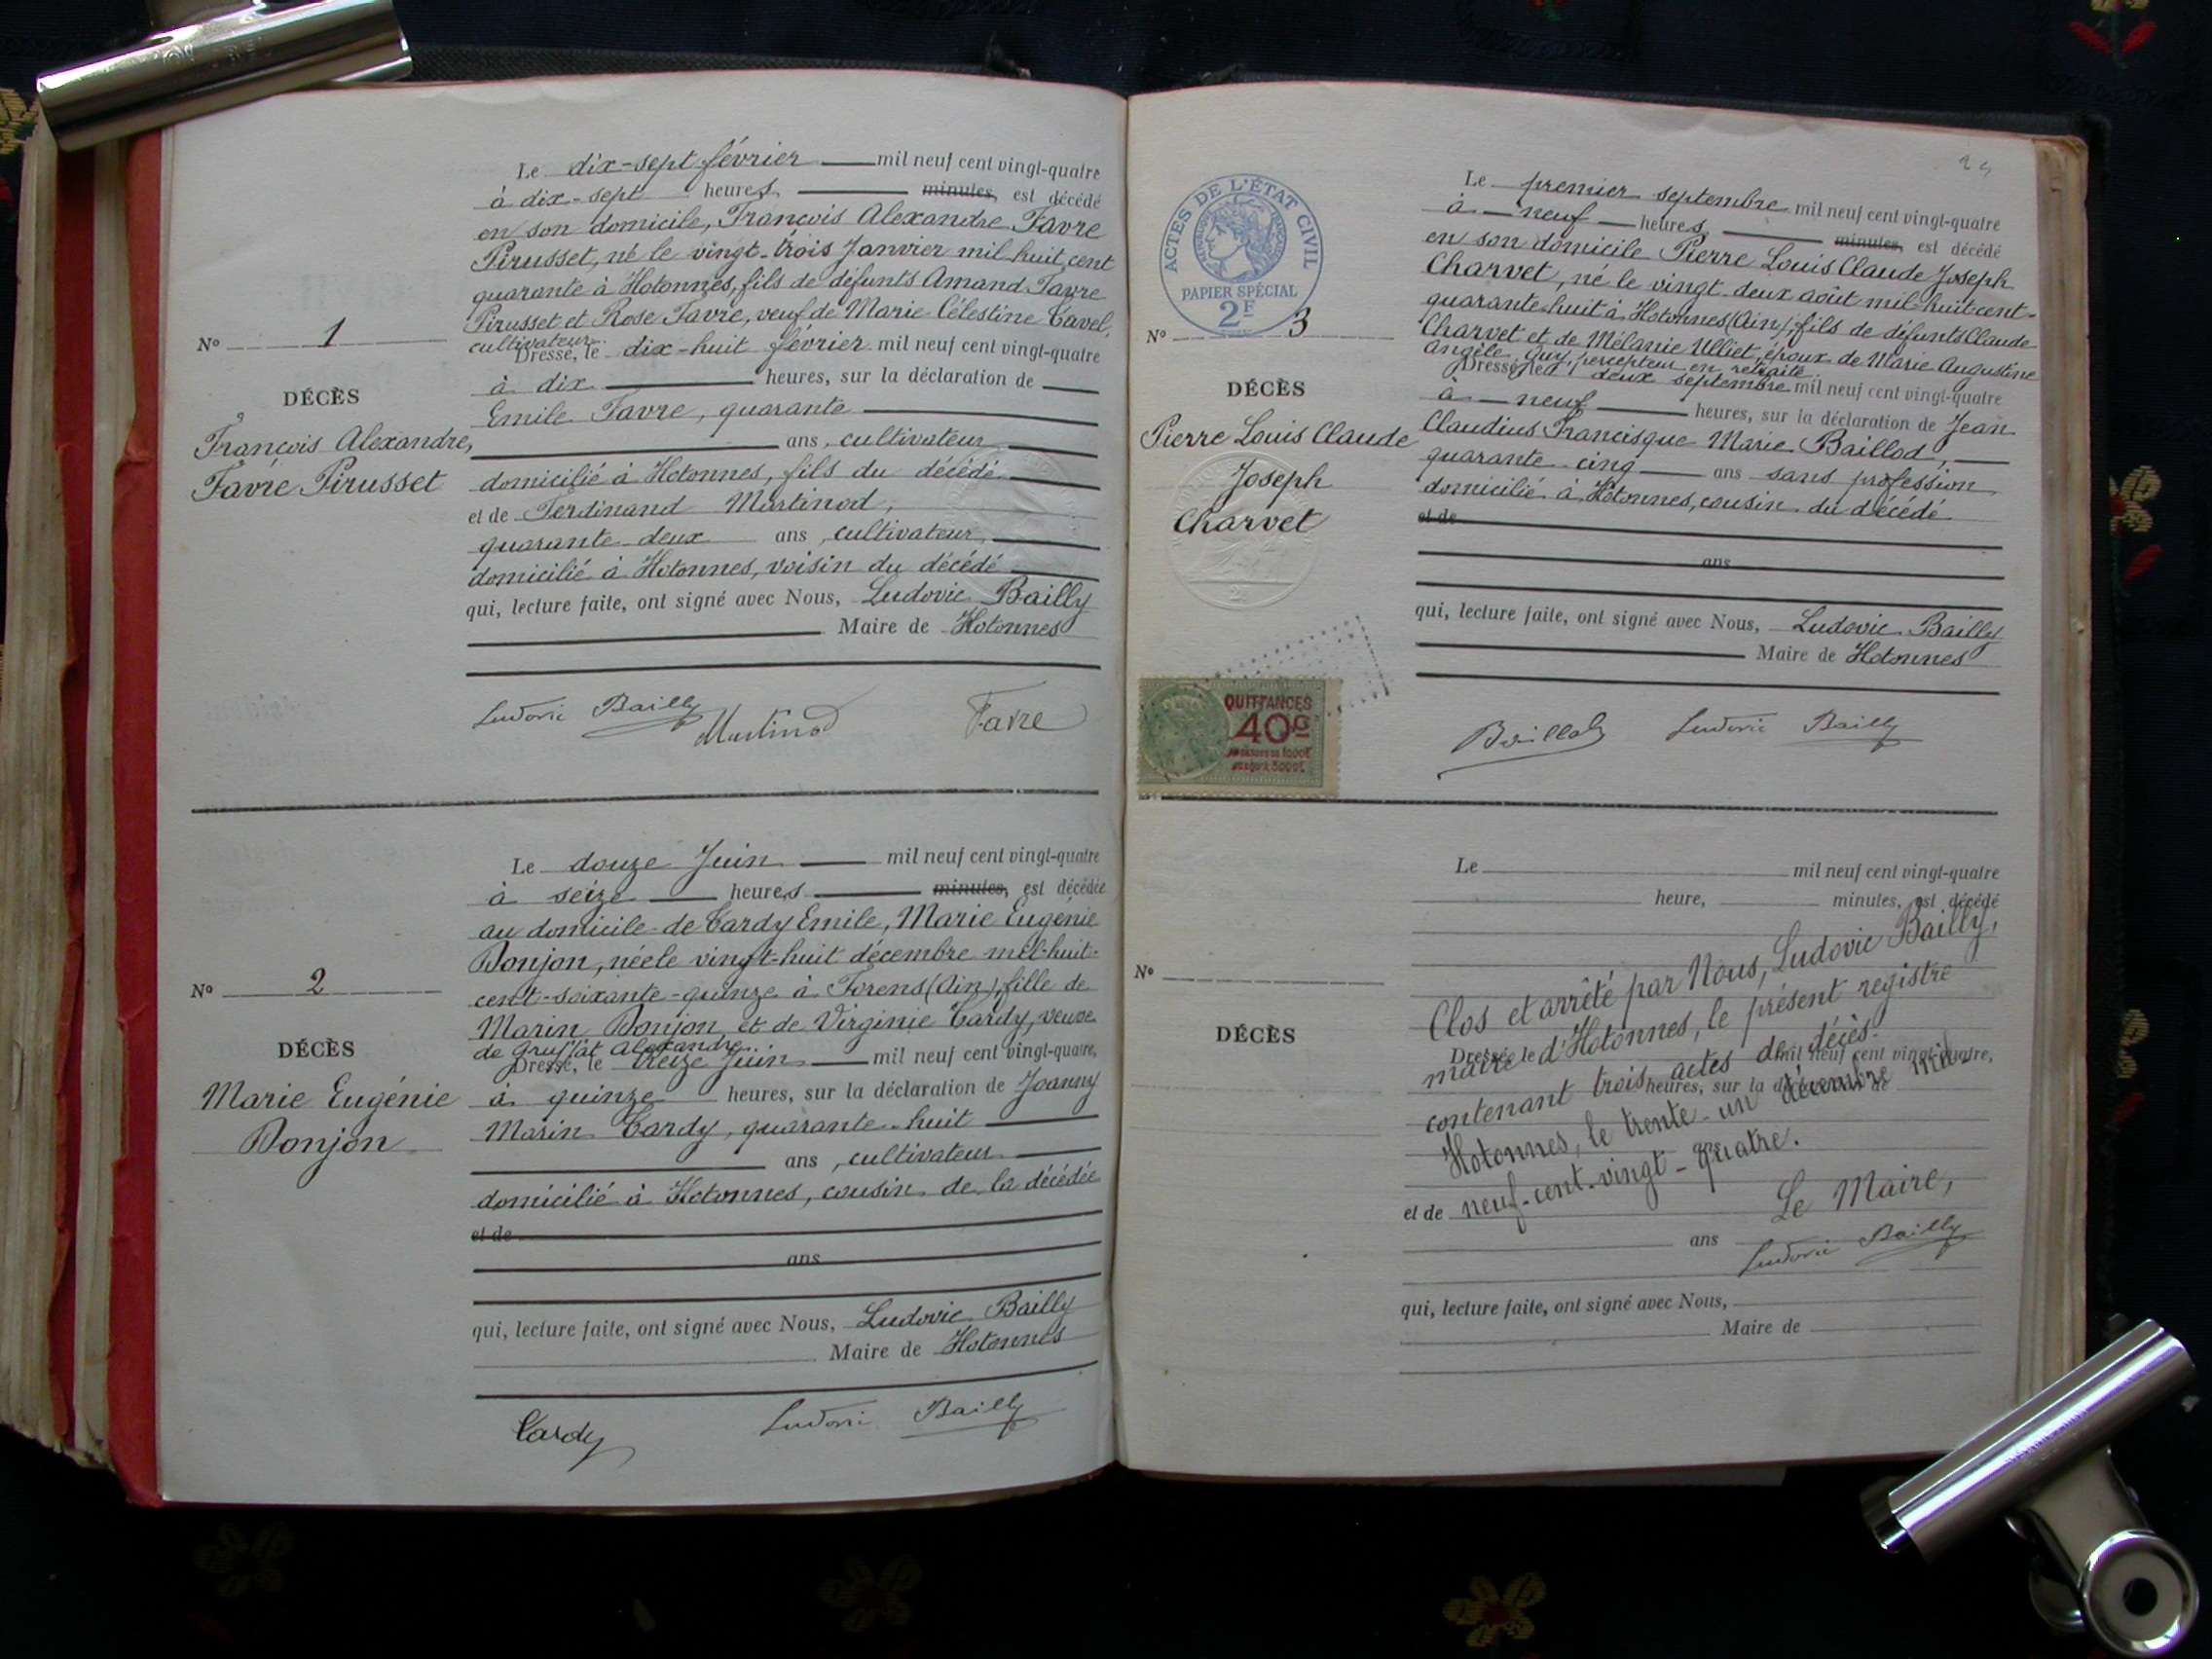 Le dix-sept février mil neuf cent vingt-quatre
à dix-sept heures minutes, est décédé
en son domicile, François Alexandre Favre
Pirusset, né le vingt-trois Janvier mil huit cent
quarante à Hotonnes, fils de défunts Amand Favre
Pirusset et Rose Favre, veuf de Marie Célestine Cavel,
cultivateur
Nº 1
Dressé, le dix-huit février mil neuf cent vingt-quatre
à dix heures, sur la déclaration de
DÉCÈS
Emile Favre, quarante
François Alexandre,
ans, cultivateur
Favre Pirusset
domicilié à Hotonnes, fils du décédé
et de Ferdinand Martinod,
quarante deux ans, cultivateur,
domicilié à Hotonnes, voisin du décédé
qui, lecture faite, ont signé avec Nous, Ludovic Bailly
Maire de Hotonnes
Ludovic Bailly
Martinod
Favre
Le douze Juin mil neuf cent vingt-quatre
à seize heures minutes, est décédée
au domicile de Cardy Emile, Marie Eugénie
Donjon, née le vingt-huit décembre mil-huit-
cent-soixante-quinze à Forens (Ain), fille de
Nº 2
Marin Donjon et de Virginie Cardy, veuve
de Gruffat Alexandre
DÉCÈS
Dressé, le treize Juin mil neuf cent vingt-quatre,
Marie Eugénie
Donjon
à quinze heures, sur la déclaration de Joanny
Marin Cardy, quarante-huit
ans, cultivateur
domicilié à Hotonnes, cousin de la décédée
et de
ans
qui, lecture faite, ont signé avec Nous, Ludovic Bailly
Maire de Hotonnes
Cardy
Ludovic Bailly
24
ACTES DE L'ÉTAT CIVIL
PAPIER SPÉCIAL
2F
Le premier septembre mil neuf cent vingt-quatre
à neuf heures minutes, est décédé
en son domicile Pierre Louis Claude Joseph
Charvet, né le vingt-deux août mil-huit-cent-
quarante-huit à Hotonnes (Ain), fils de défunts Claude
Nº 3
Charvet et de Mélanie Ulliet, époux de Marie Augustine
Angèle Guy, percepteur en retraite
DÉCÈS
Dressé, le deux septembre mil neuf cent vingt-quatre
à neuf heures, sur la déclaration de Jean
Pierre Louis Claude
Joseph
Charvet
Claudius Francisque Marie Baillod,
quarante-cinq ans sans profession
domicilié à Hotonnes, cousin du décédé
et de
ans
qui, lecture faite, ont signé avec Nous, Ludovic Bailly
Maire de Hotonnes
QUITTANCES
40c
Baillod
Ludovic Bailly
Le mil neuf cent vingt-quatre
heure, minutes, est décédé
Nº
DÉCÈS
Clos et arrêté par Nous, Ludovic Bailly,
maire d'Hotonnes, le présent registre
Dressé, le mil neuf cent vingt-quatre,
contenant trois actes de décès.
heures, sur la déclaration de
Hotonnes, le trente-un décembre mil-
ans
neuf-cent-vingt-quatre.
et de
Le Maire,
ans
Ludovic Bailly
qui, lecture faite, ont signé avec Nous,
Maire de